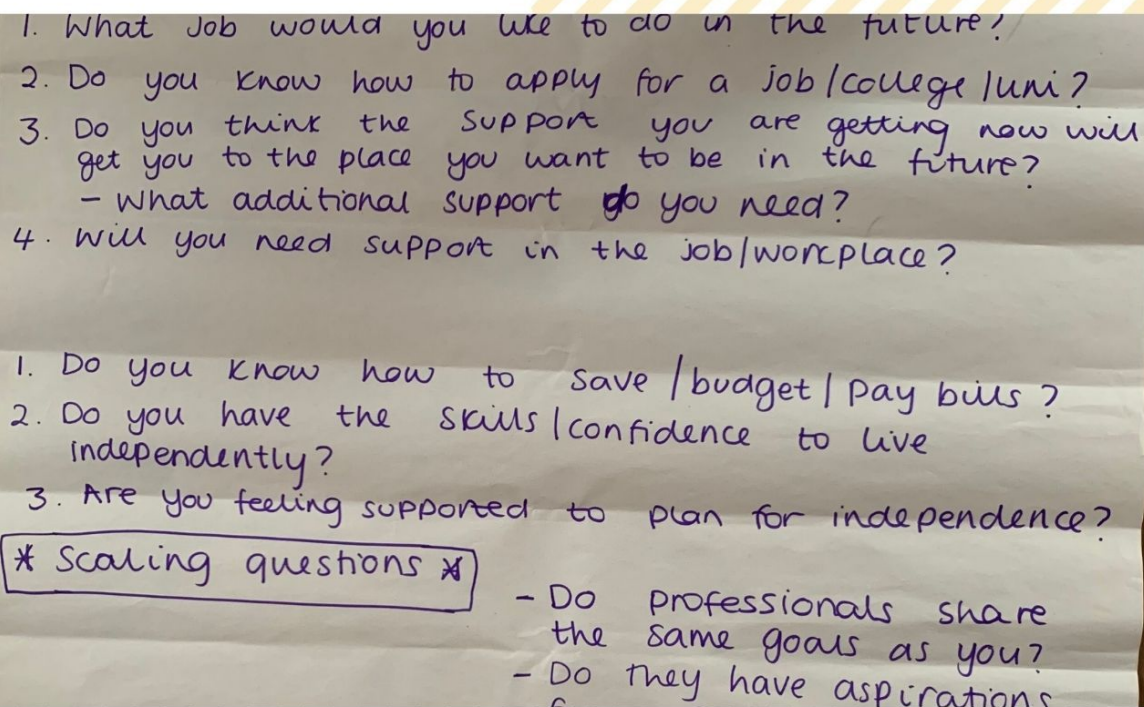 1. What Job would you like to do in the future?
2. Do you know how to apply for a job/college/uni?
3. Do you think the support you are getting now will
get you to the place you want to be in the future?
- What additional support do you need?
4. Will you need support in the job/workplace?
1. Do you know how to save/budget/pay bills?
2. Do you have the skills/confidence to live
independently?
3. Are you feeling supported to plan for independence?
* Scaling questions *
- Do professionals share
the same goals as you?
- Do they have aspirations